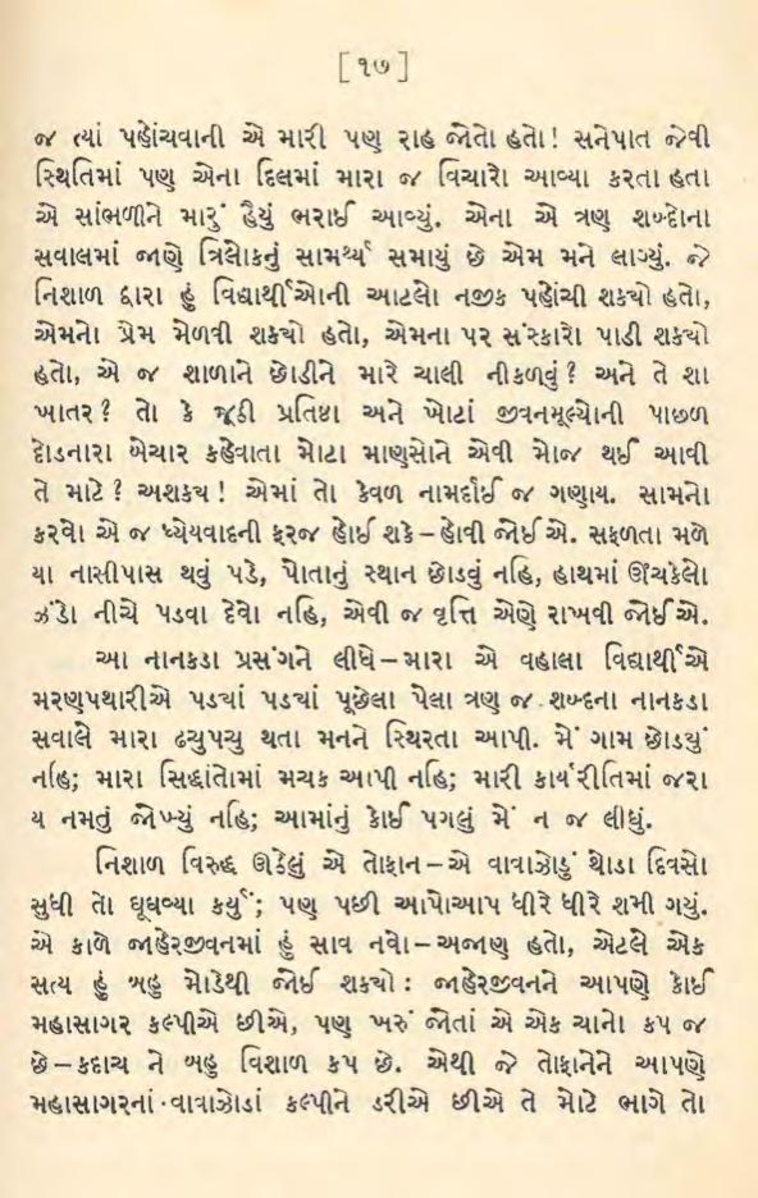 [ ૧૭ ]
જ ત્યાં પહોંચવાની એ મારી પણ રાહ જોતો હતો! સનેપાત જેવી
સ્થિતિમાં પણ એના દિલમાં મારા જ વિચારો આવ્યા કરતા હતા
એ સાંભળીને મારું હૈયું ભરાઈ આવ્યું. એના એ ત્રણ શબ્દોના
સવાલમાં જાણે ત્રિલોકનું સામર્થ્ય સમાયું છે એમ મને લાગ્યું. જે
નિશાળ દ્વારા હું વિદ્યાર્થીઓની આટલો નજીક પહોંચી શક્યો હતો,
એમનો પ્રેમ મેળવી શક્યો હતો, એમના પર સંસ્કારો પાડી શક્યો
હતો, એ જ શાળાને છોડીને મારે ચાલી નીકળવું? અને તે શા
ખાતર? તો કે જૂઠી પ્રતિષ્ઠા અને ખોટાં જીવનમૂલ્યોની પાછળ
દોડનારા બેચાર કહેવાતા મોટા માણસોને એવી મોજ થઈ આવી
તે માટે? અશક્ય! એમાં તો કેવળ નામર્દાઈ જ ગણાય. સામનો
કરવો એ જ ધ્યેયવાદની ફરજ હોઈ શકે – હોવી જોઈએ. સફળતા મળે
યા નાસીપાસ થવું પડે, પોતાનું સ્થાન છોડવું નહિ, હાથમાં ઊંચકેલો
ઝંડો નીચે પડવા દેવો નહિ, એવી જ વૃત્તિ એણે રાખવી જોઈએ.
આ નાનકડા પ્રસંગને લીધે – મારા એ વહાલા વિદ્યાર્થીએ
મરણપથારીએ પડ્યાં પડ્યાં પૂછેલા પેલા ત્રણ જ શબ્દના નાનકડા
સવાલે મારા ઢચુપચુ થતા મનને સ્થિરતા આપી. મેં ગામ છોડ્યું
નહિ; મારા સિદ્ધાંતોમાં મચક આપી નહિ; મારી કાર્યરીતિમાં જરા
ય નમતું જોખ્યું નહિ; આમાંનું કોઈ પગલું મેં ન જ લીધું.
નિશાળ વિરુદ્ધ ઊઠેલું એ તોફાન – એ વાવાઝોડું થોડા દિવસો
સુધી તો ઘૂઘવ્યા કર્યું; પણ પછી આપોઆપ ધીરે ધીરે શમી ગયું.
એ કાળે જાહેરજીવનમાં હું સાવ નવો – અજાણ હતો, એટલે એક
સત્ય હું બહુ મોડેથી જોઈ શક્યો : જાહેરજીવનને આપણે કોઈ
મહાસાગર કલ્પીએ છીએ, પણ ખરું જોતાં એ એક ચાનો કપ જ
છે – કદાચ ને બહુ વિશાળ કપ છે. એથી જે તોફાનોને આપણે
મહાસાગરનાં વાવાઝોડાં કલ્પીને ડરીએ છીએ તે મોટે ભાગે તો